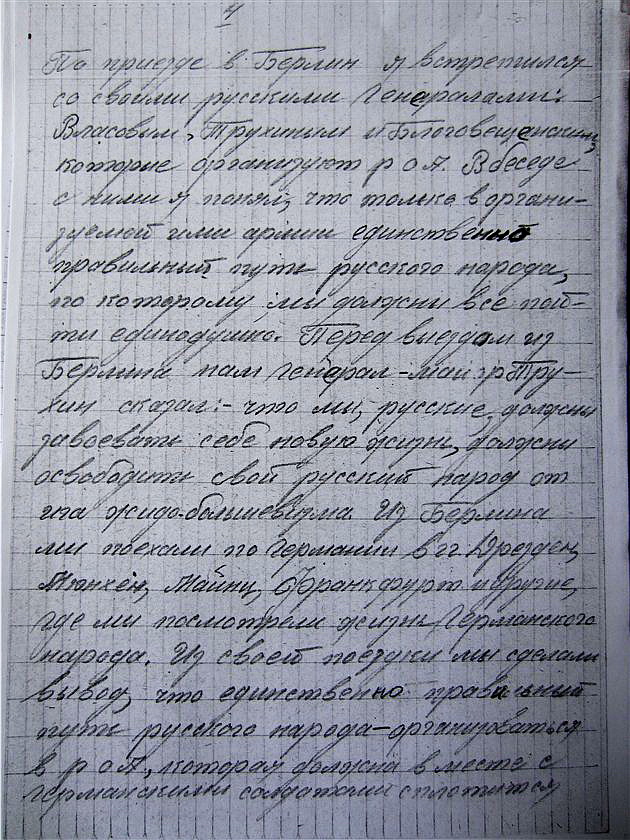 4
По приезде в Берлин я встретился
со своими русскими Генералами:
Власовым, Трухиным и Благовещенским,
которые организуют р о А. В беседе
с ними я понял, что только в органи-
зуемой ими армии единственно
правильный путь русского народа,
по которому мы должны все пой-
ти единодушно. Перед выездом из
Берлина нам Генерал-маиор Тру-
хин сказал:- что мы, русские, должны
завоевать себе новую жизнь, должны
освободить свой русский народ от
ига жидо-большевизма Из Берлина
мы поехали по Германии в гг Дрезден,
Мюнхен, Майнц, Франкфурт и другие,
где мы посмотрели жизнь Германского
народа. Из своей поездки мы сделали
вывод, что единственно правильный
путь русского народа-организоваться
в р о А, которая должна вместе с
Германскими солдатами сплотится